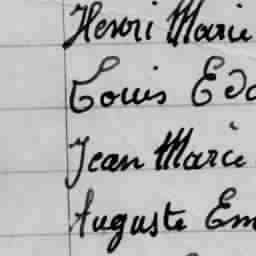 Henri Marie
Louis Edo
Jean Marie
Auguste Em